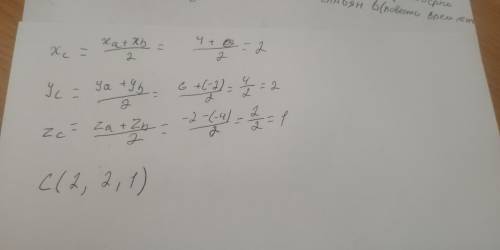 xc = xa + xb / 2 = 4 + 0 / 2 = 2
yc = ya + yb / 2 = 6 + (-2) / 2 = 4 / 2 = 2
zc = za + zb / 2 = -2 - (-4) / 2 = 2 / 2 = 1
C(2, 2, 1)